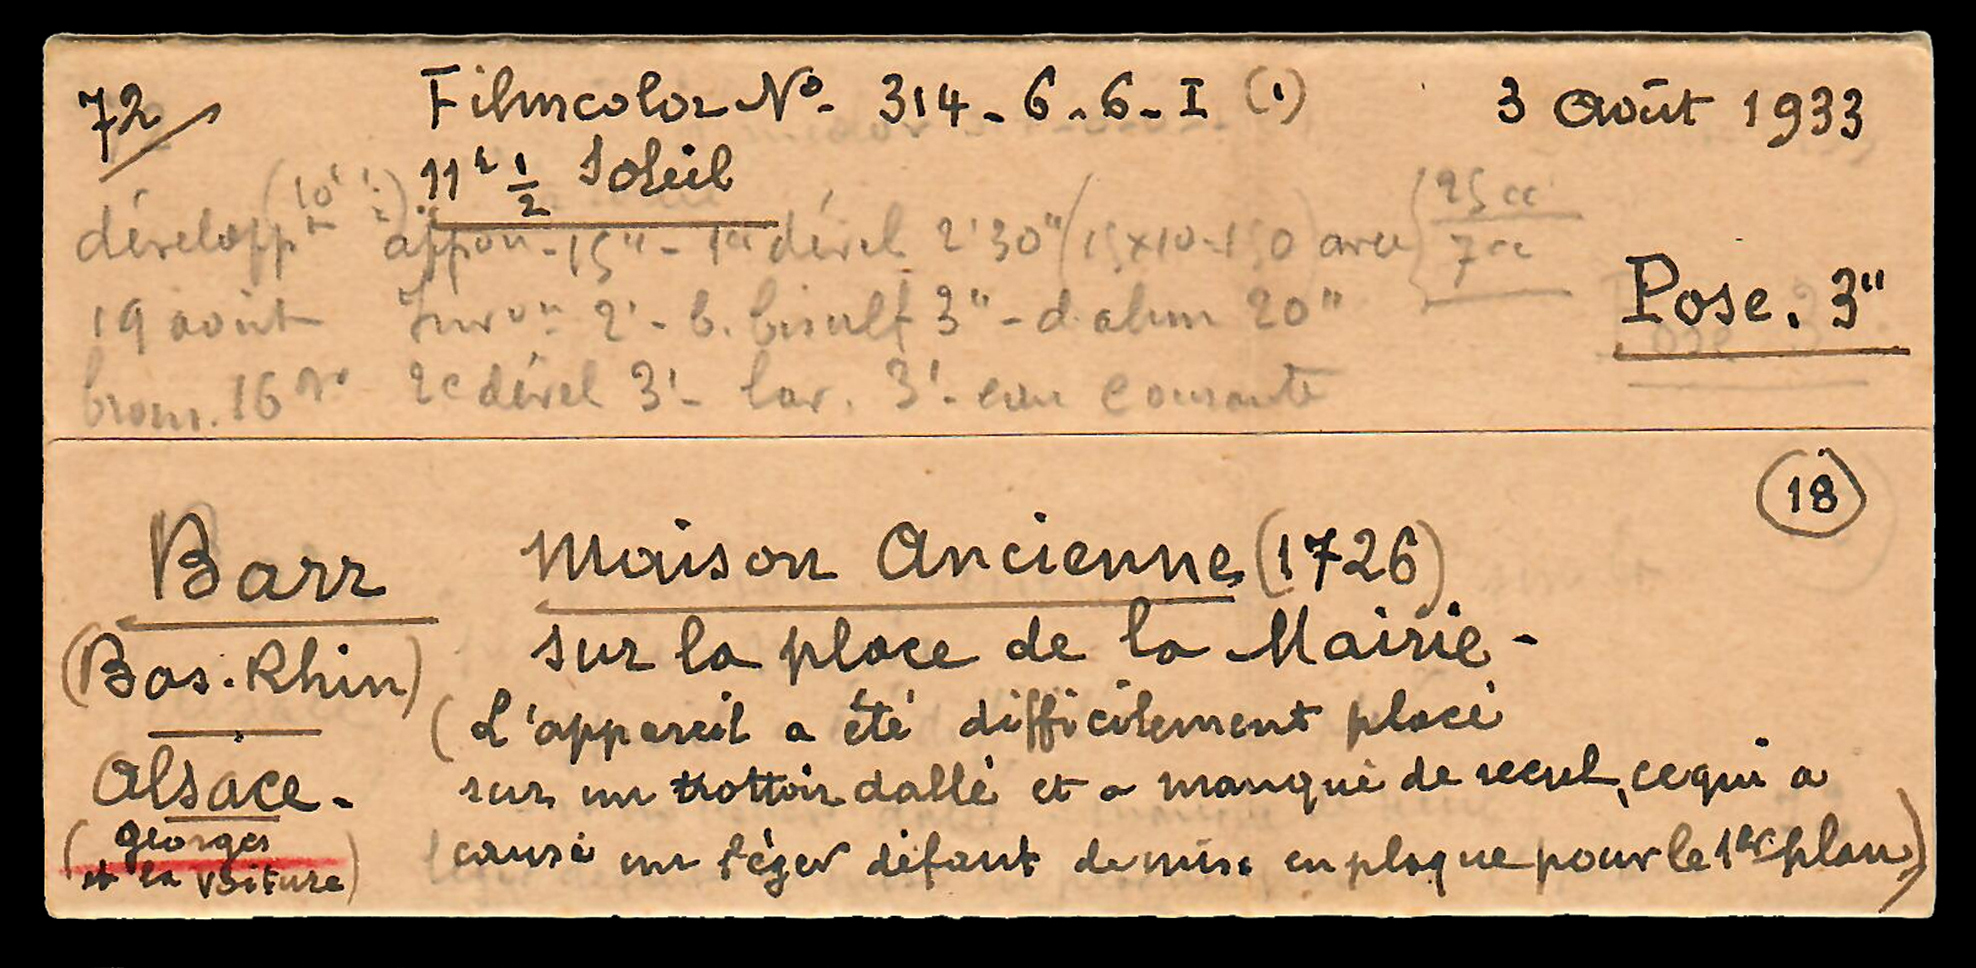 72 Filmcolor No. 314-6-6-I (1) 3 Août 1933
11h 1/2 Soleil
développt (10' 1/2) appon - 15" - 1er dével 2'30" (15x10=150) avec 25cc / 7cc
Pose. 3"
19 août Invon 2' - b. bisulf 3" - d. alun 20"
brom. 16 2e dével 3' - lav. 3' - eau courante
18
Barr Maison Ancienne (1726)
(Bas-Rhin) sur la place de la Mairie -
(L'appareil a été difficilement placé
Alsace. sur un trottoir dallé et a manqué de recul, ce qui a
(Georges causé un léger défaut de mise en plaque pour le 1er plan)
et la voiture)